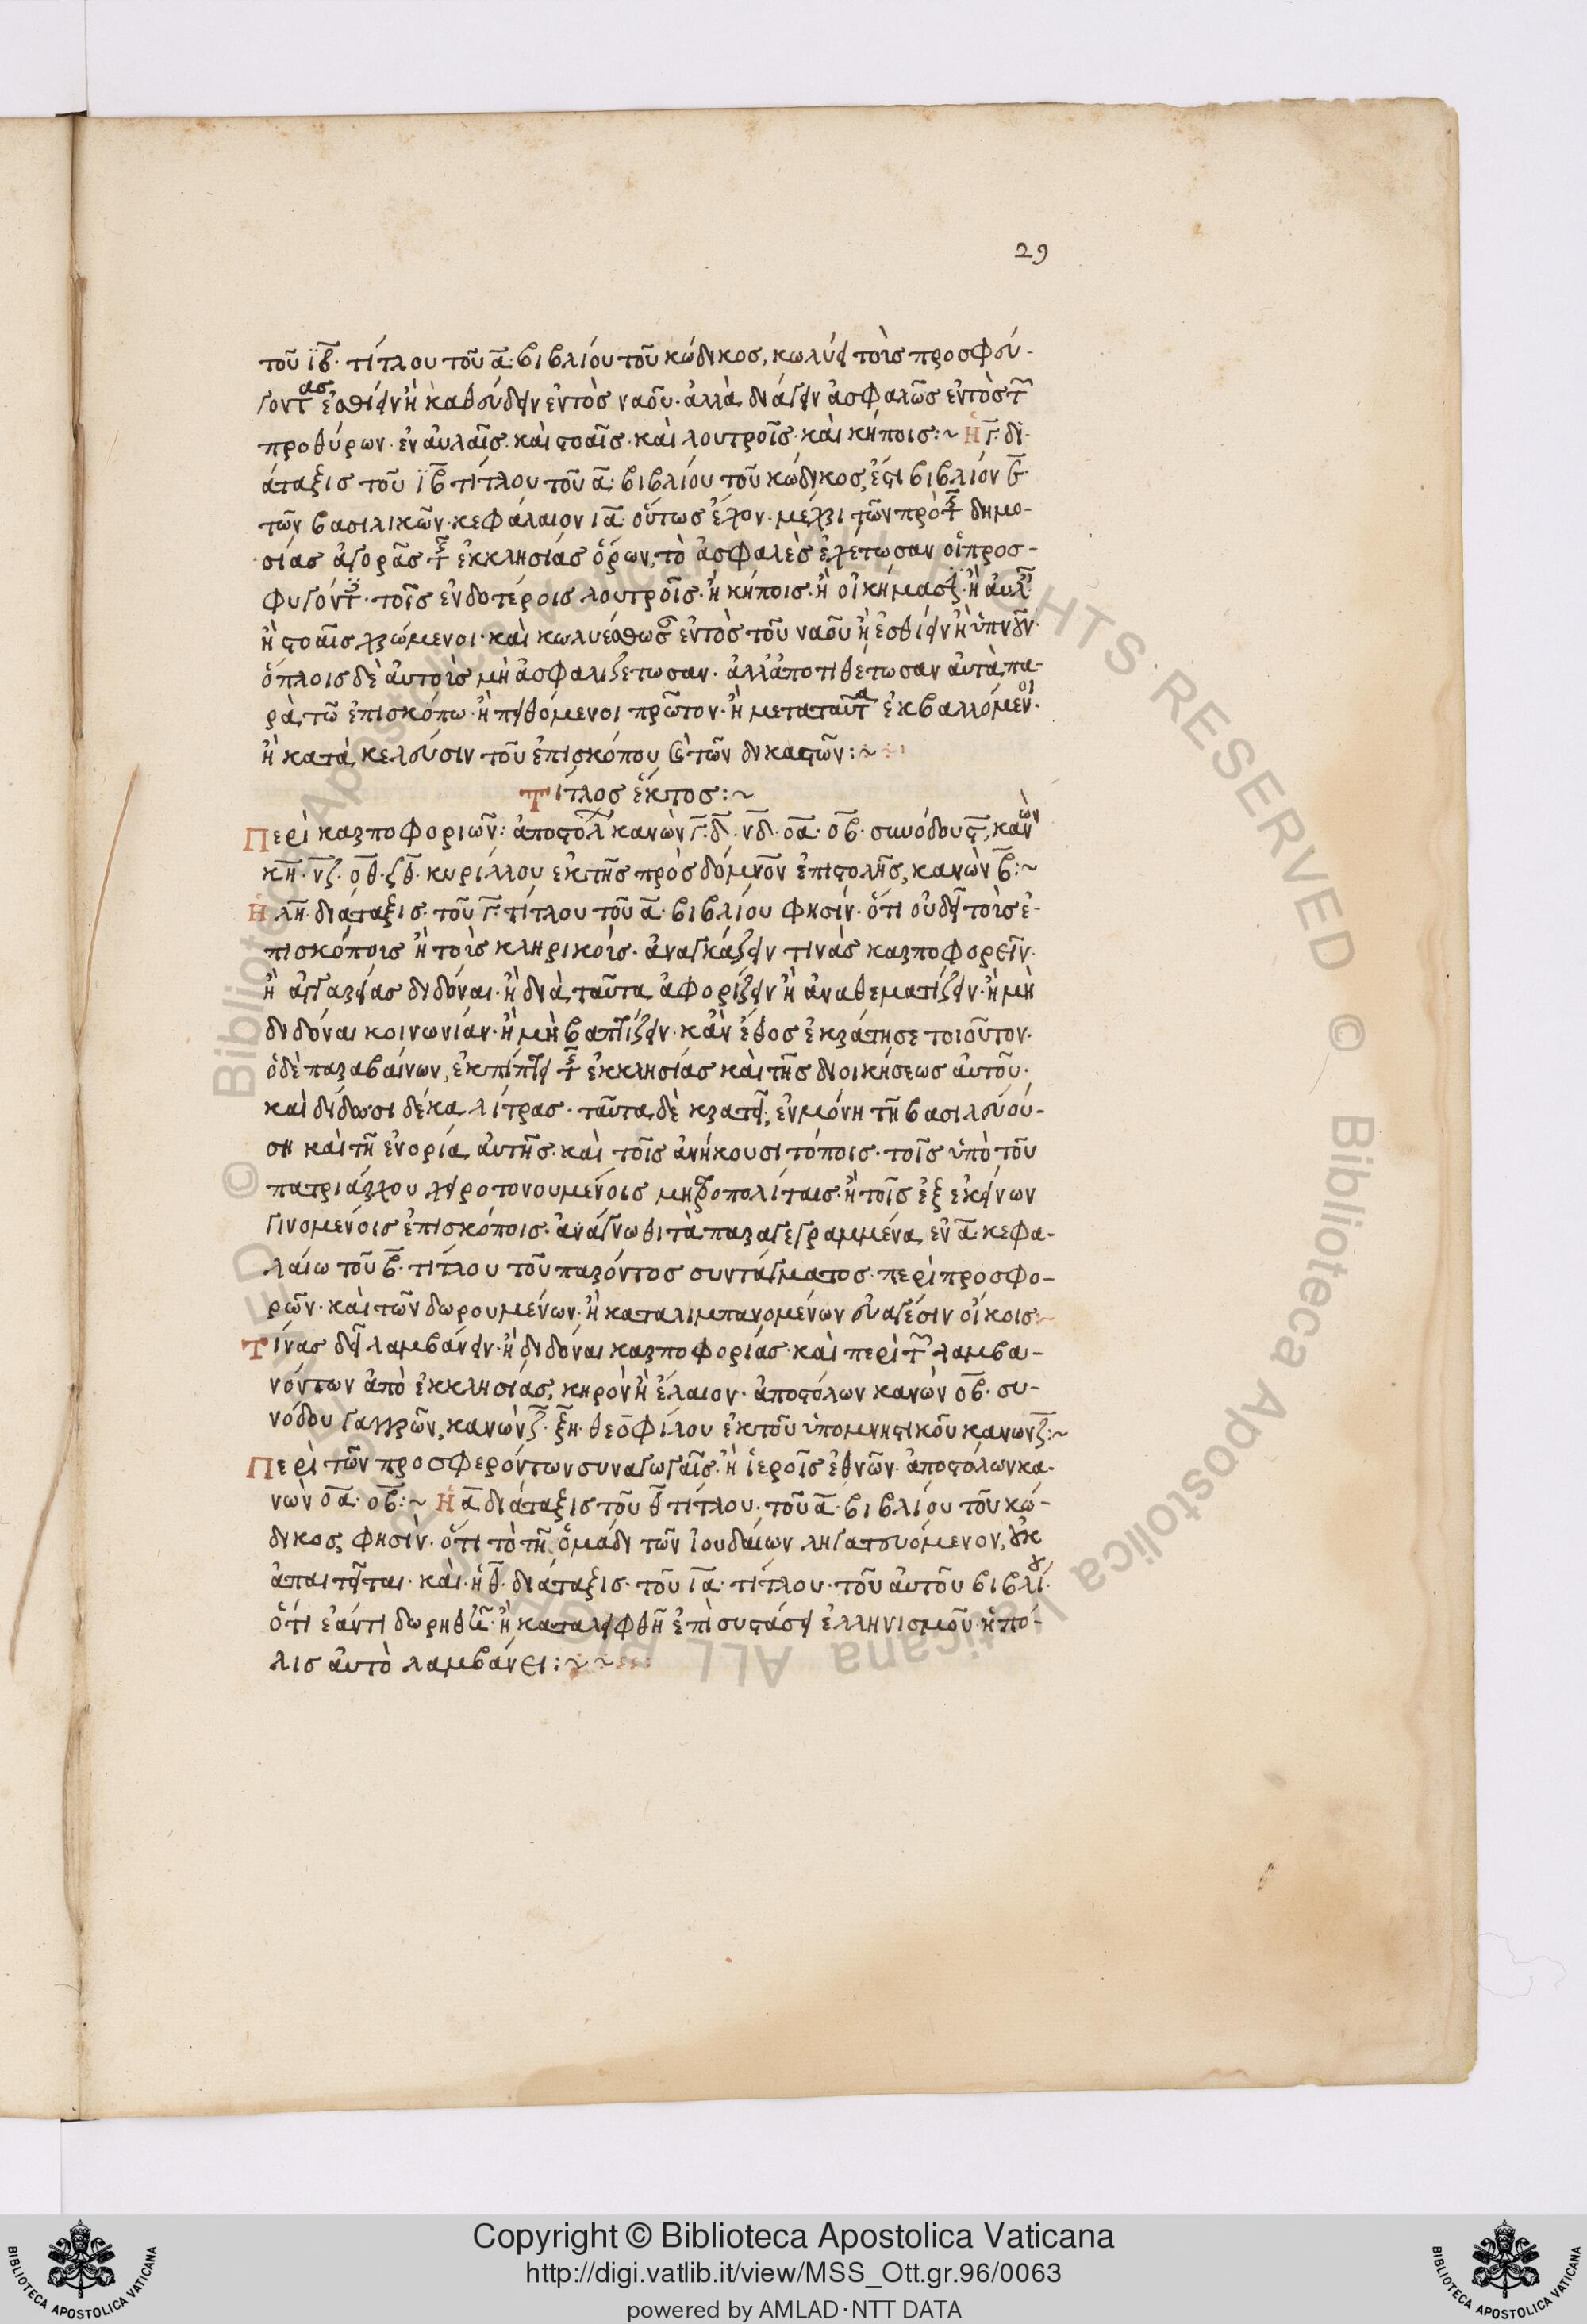 29
τοῦ ϊβ̅· τίτλου τοῦ α̅· βιβλίου τοῦ κώδικος, κωλύει τοὺς προσφύ-
γοντας ἐσθίειν ἢ καθεύδειν ἐντὸς ναοῦ· ἀλλὰ διάγειν ἀσφαλῶς ἐντὸς τῶν
προθύρων· ἐν αὐλαῖς· καὶ στοαῖς· καὶ λουτροῖς· καὶ κήποις:~ Ἡ γ̅· δι-
άταξις τοῦ ϊβ̅ τίτλου τοῦ α̅· βιβλίου τοῦ κώδικος, ἔστι βιβλίον ε̅·
τῶν βασιλικῶν· κεφάλαιον ια̅· οὕτως ἔχον· μέχρι τῶν πρὸ τῆς δημο-
σίας ἀγορᾶς τῆς ἐκκλησίας ὅρων, τὸ ἀσφαλὲς ἐχέτωσαν οἱ προσ-
φυγόντες· τοῖς ἐνδοτέροις λουτροῖς· ἢ κήποις· ἢ οἰκήμασι· ἢ αὐλαῖς
ἢ στοαῖς χρώμενοι· καὶ κωλυέσθωσαν ἐντὸς τοῦ ναοῦ ἢ ἐσθίειν ἢ ὑπνοῦν·
ὅπλοις δὲ αὐτοὺς μὴ ἀσφαλιζέτωσαν· ἀλλ' ἀποτιθέτωσαν αὐτὰ πα-
ρὰ τῶ ἐπισκόπω· ἢ πειθόμενοι πρῶτον· ἢ μεταταῦτα ἐκβαλλόμενοι·
ἢ κατὰ κέλευσιν τοῦ ἐπισκόπου καὶ τῶν δικαστῶν:~
Τίτλος ἕκτος:~
Περὶ καρποφοριῶν: ἀποστόλων κανὼν γ̅· δ̅· νδ̅· οα̅· οβ̅· συνόδου ϛ̅, κανὼν
κη̅· νζ̅· οθ̅· ϟθ̅· κυρίλλου ἐκ τῆς πρὸς δόμνον ἐπιστολῆς, κανὼν β̅:~
Ἡ λη̅· διάταξις· τοῦ γ̅· τίτλου τοῦ α̅· βιβλίου φησίν· ὅτι οὐ δεῖ τοὺς ἐ-
πισκόπους ἢ τοὺς κληρικοὺς· ἀναγκάζειν τινὰς καρποφορεῖν·
ἢ ἀγγαρείας διδόναι· ἢ διὰ ταῦτα ἀφορίζειν ἢ ἀναθεματίζειν· ἢ μὴ
διδόναι κοινωνίαν· ἢ μὴ βαπτίζειν· κἂν ἔθος ἐκράτησε τοιοῦτον·
ὁ δὲ παραβαίνων, ἐκπίπτει τῆς ἐκκλησίας καὶ τῆς διοικήσεως αὐτοῦ·
καὶ δίδωσι δέκα λίτρας· ταῦτα δὲ κρατεῖ, ἐν μόνη τῆ βασιλευού-
ση καὶ τῆ ἐνορία αὐτῆς· καὶ τοῖς ἀνήκουσι τόποις· τοῖς ὑπὸ τοῦ
πατριάρχου χειροτονουμένοις μητροπολίταις· ἢ τοῖς ἐξ ἐκείνων
γινομένοις ἐπισκόποις· ἀνάγνωθι τὰ παραγεγραμμένα, ἐν α̅· κεφα-
λαίω τοῦ β̅· τίτλου τοῦ παρόντος συντάγματος· περὶ προσφο-
ρῶν· καὶ τῶν δωρουμένων· ἢ καταλιμπανομένων εὐαγέσιν οἴκοις:~
Τίνας δεῖ λαμβάνειν· ἢ διδόναι καρποφορίας· καὶ περὶ τῶν λαμβα-
νόντων ἀπὸ ἐκκλησίας, κηρὸν ἢ ἔλαιον· ἀποστόλων κανὼν οβ̅· συ-
νόδου γαγγρῶν, κανὼν ζ̅· ξη̅· θεοφίλου ἐκ τοῦ ὑπομνηστικοῦ κανων ζ̅:~
Περὶ τῶν προσφερόντων συναγωγαῖς· ἢ ἱεροῖς ἐθνῶν· ἀποστόλων κα-
νὼν οα̅· οβ̅:~ Ἡ α̅ διάταξις τοῦ θ̅ τίτλου· τοῦ α̅· βιβλίου τοῦ κώ-
δικος, φησὶν· ὅτι τὸ τῆ ὁμάδι τῶν ἰουδαίων ληγατευόμενον, οὐκ
ἀπαιτεῖται· καὶ· ἡ θ̅· διάταξις· τοῦ ια̅· τίτλου· τοῦ αὐτοῦ βιβλίου·
ὅτι ἐάν τι δωρηθῆ· ἢ καταλειφθῆ ἐπὶ συστάσει ἑλληνισμοῦ· ἡ πό-
λις αὐτὸ λαμβάνει:~
Copyright © Biblioteca Apostolica Vaticana
http://digi.vatlib.it/view/MSS_Ott.gr.96/0063
powered by AMLAD·NTT DATA